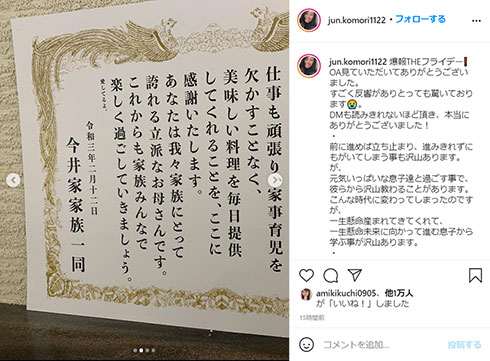 仕事も頑張り家事育児を
欠かすことなく、
美味しい料理を毎日提供
してくれることを、ここに
感謝いたします。
あなたは我々家族にとって
誇れる立派なお母さんです。
これからも家族みんなで
楽しく過ごしていきましょう。
愛してるよ。
令和三年二月十二日
今井家家族一同
jun.komori1122・フォローする
jun.komori1122 爆報THEフライデー
OA見ていただいてありがとうござい
ました。
すごく反響がありとっても驚いており
ます😭。
DMも読みきれないほど頂き、本当に
ありがとうございました！
・
前に進めば立ち止まり、進みきれずに
もがいてしまう事も沢山あります。
が、
元気いっぱいな息子達と過ごす事で、
彼らから沢山教わることがあります。
こんな時代に変わってしまったのです
が、
一生懸命産まれてきてくれて、
一生懸命未来に向かって進む息子から
学ぶ事が沢山あります。
・
amikikuchi0905、他1万人
が「いいね！」しました
15時間前
コメントを追加...
投稿する